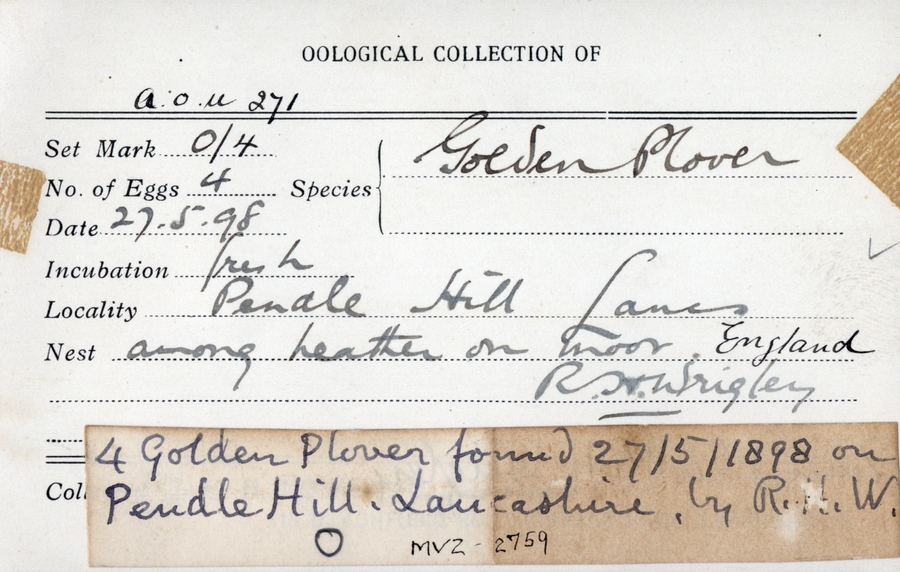 OOLOGICAL COLLECTION OF
A.O.U 271
Set Mark 0/4
No. of Eggs 4 Species Golden Plover
Date 27.5.98
Incubation fresh
Locality Pendle Hill Lancs
Nest among heather on moor. England
R.H.Wrigley
4 Golden Plover found 27/5/1898 on
Coll
Pendle Hill. Lancashire, by R.H.W.
O MVZ-2759